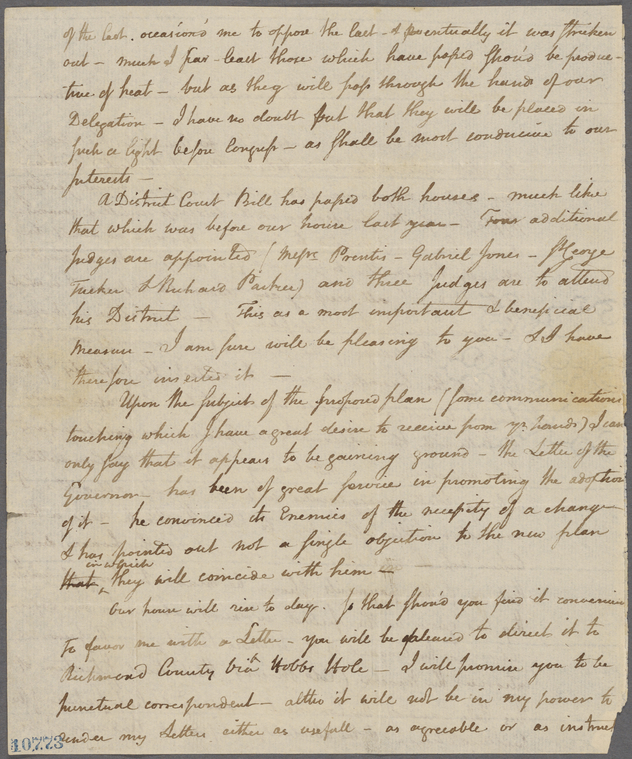 of the last. occasion'd me to oppose the last - & eventually it was stricken
out - much I fear - least those which have passed should be produc-
tive of heat - but as they will pass through the hands of our
Delegation - I have no doubt but that they will be placed in
such a light before Congress - as shall be most conducive to our
Interests -
A District Court Bill has passed both houses - much like
that which was before our house last year - Four additional
Judges are appointed (Messrs Prentis - Gabriel Jones - St George
Tucker & Richard Parker) and three Judges are to attend
his District - This as a most important & beneficial
measure - I am sure will be pleasing to you - & I have
therefore inserted it -
Upon the subject of the proposed plan (some communications
touching which I have a great desire to receive from yr hands) I can
only say that it appears to be gaining ground - the Letter of the
Governor has been of great service in promoting the adoption
of it - he convinced its Enemies of the necessity of a change
& has pointed out not a single objection to the new plan
in which
that they will coincide with him -
Our house will rise to day. so that should you find it convenien
to favor me with a Letter - you will be pleased to direct it to
Richmond County via Hobbs Hole - I will promise you to be
punctual correspondent - altho it will not be in my power to
render my Letters either as usefull - as agreeable or as instruc
10773